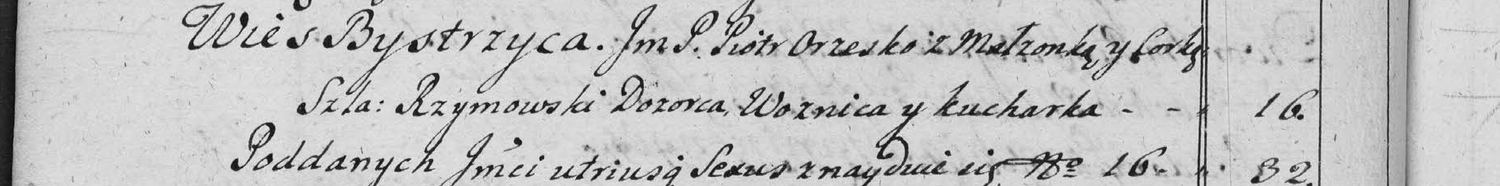 Wies Bystrzyca. Jm P. Piotr Orzesko z Małzonką y Corką
Szla: Rzymowski Dozorca, Woznica y kucharka - - 16.
Poddanych Jmci utriusq Sexus znayduie się No 16. 32.